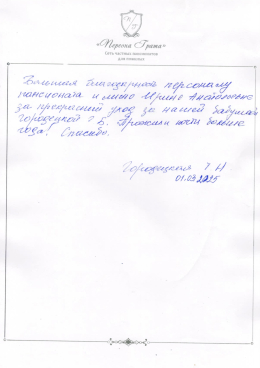 «Персона Грата»
СЕТЬ ЧАСТНЫХ ПАНСИОНАТОВ
ДЛЯ ПОЖИЛЫХ
Большая благодарность персоналу
пансионата и лично Ирине Анатольевне
за прекрасный уход за нашей бабушкой
Городецкой З В. Прожили почти больше
года! Спасибо.
Городецкая Т Н
01.03.2025